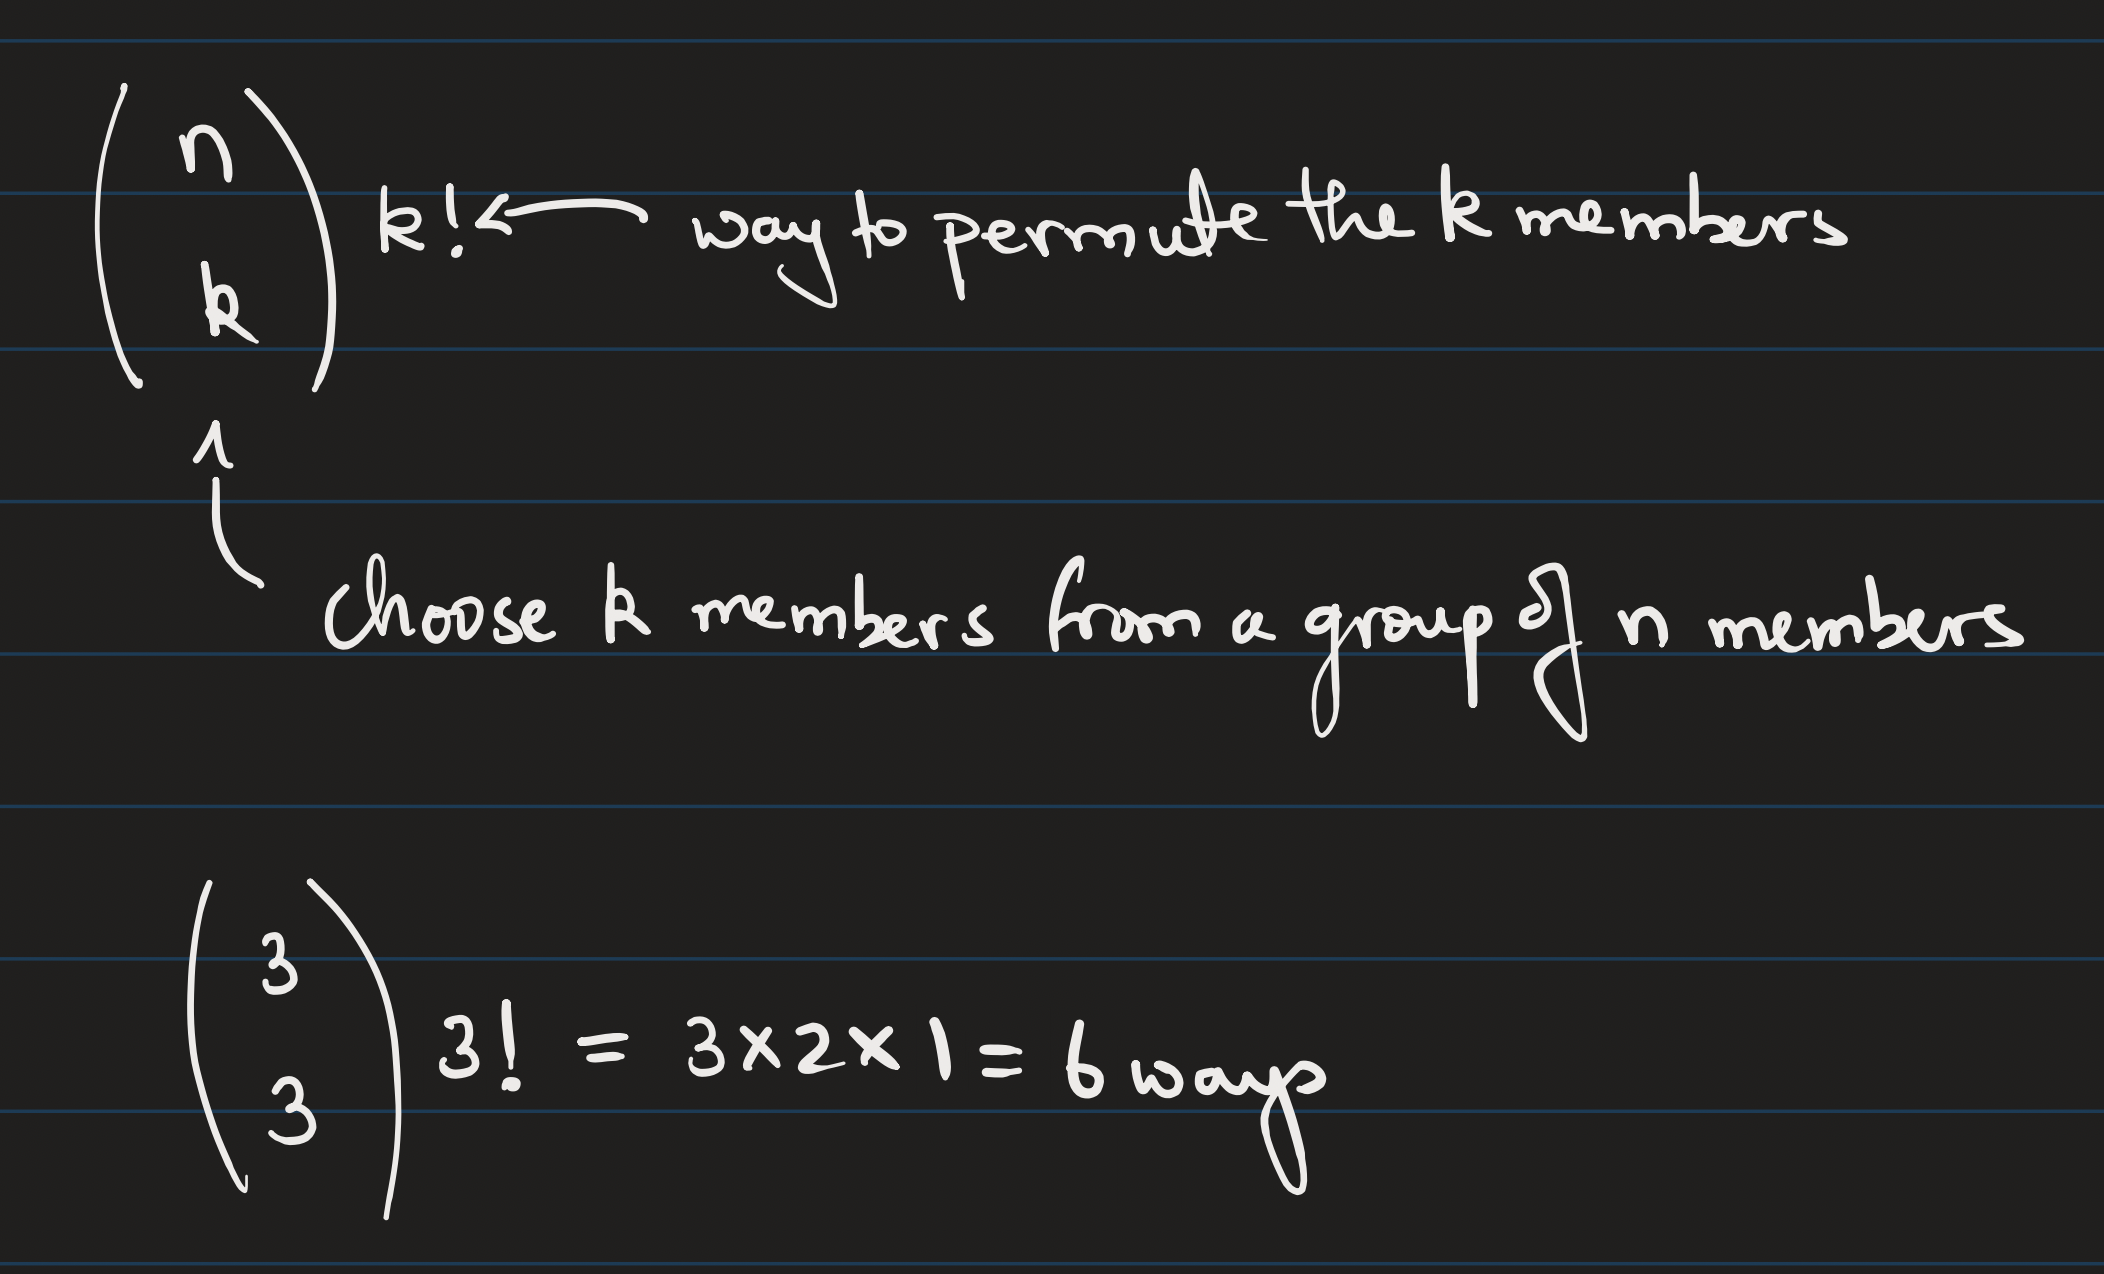 (n k) k! ← way to permute the k members
↑ choose k members from a group of n members
(3 3) 3! = 3×2×1 = 6 ways